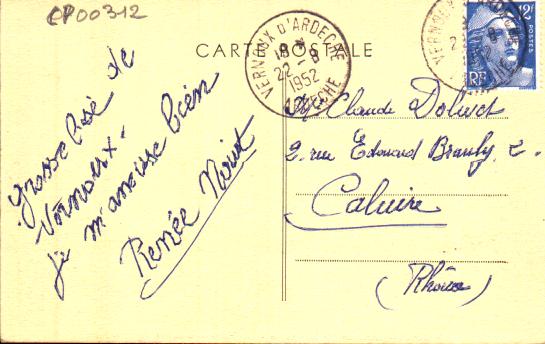 CP00312
CARTE POSTALE
VERNOUX D'ARDECHE
18 H
22-8
1952
ARDECHE
12F
POSTES
RF
Mr Claude
2, rue Edouard Branly, 2.
Caluire
(Rhône)
Grosse bisé de
Vernoux.
je m'amuse bien
Renée